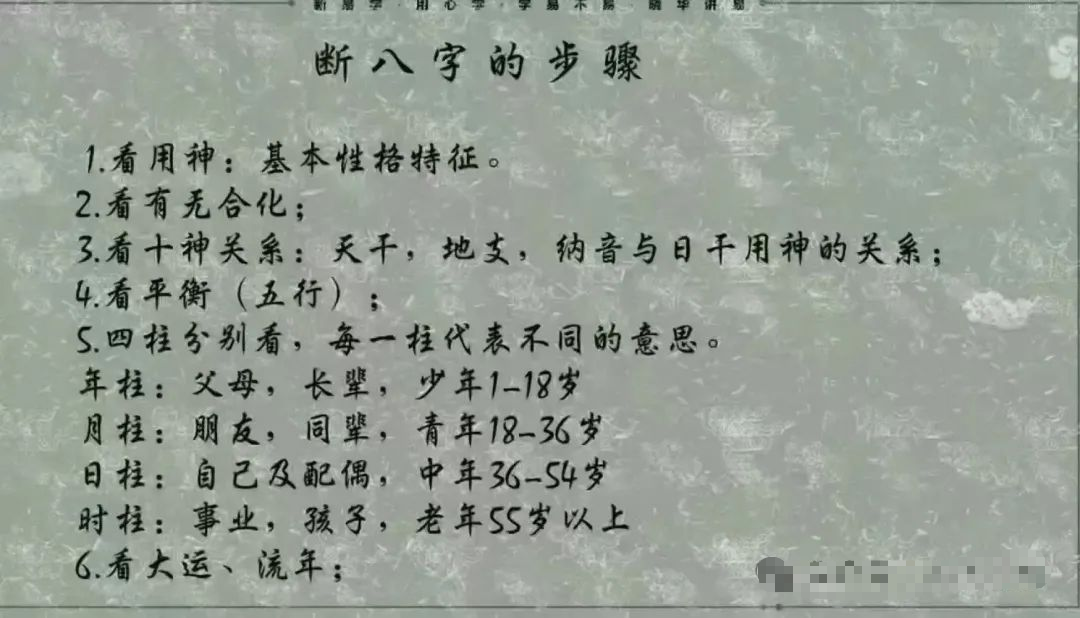 断八字的步骤
1.看用神：基本性格特征。
2.看有无合化；
3.看十神关系：天干，地支，纳音与日干用神的关系；
4.看平衡（五行）；
5.四柱分别看，每一柱代表不同的意思。
年柱：父母，长辈，少年1-18岁
月柱：朋友，同辈，青年18-36岁
日柱：自己及配偶，中年36-54岁
时柱：事业，孩子，老年55岁以上
6.看大运、流年；